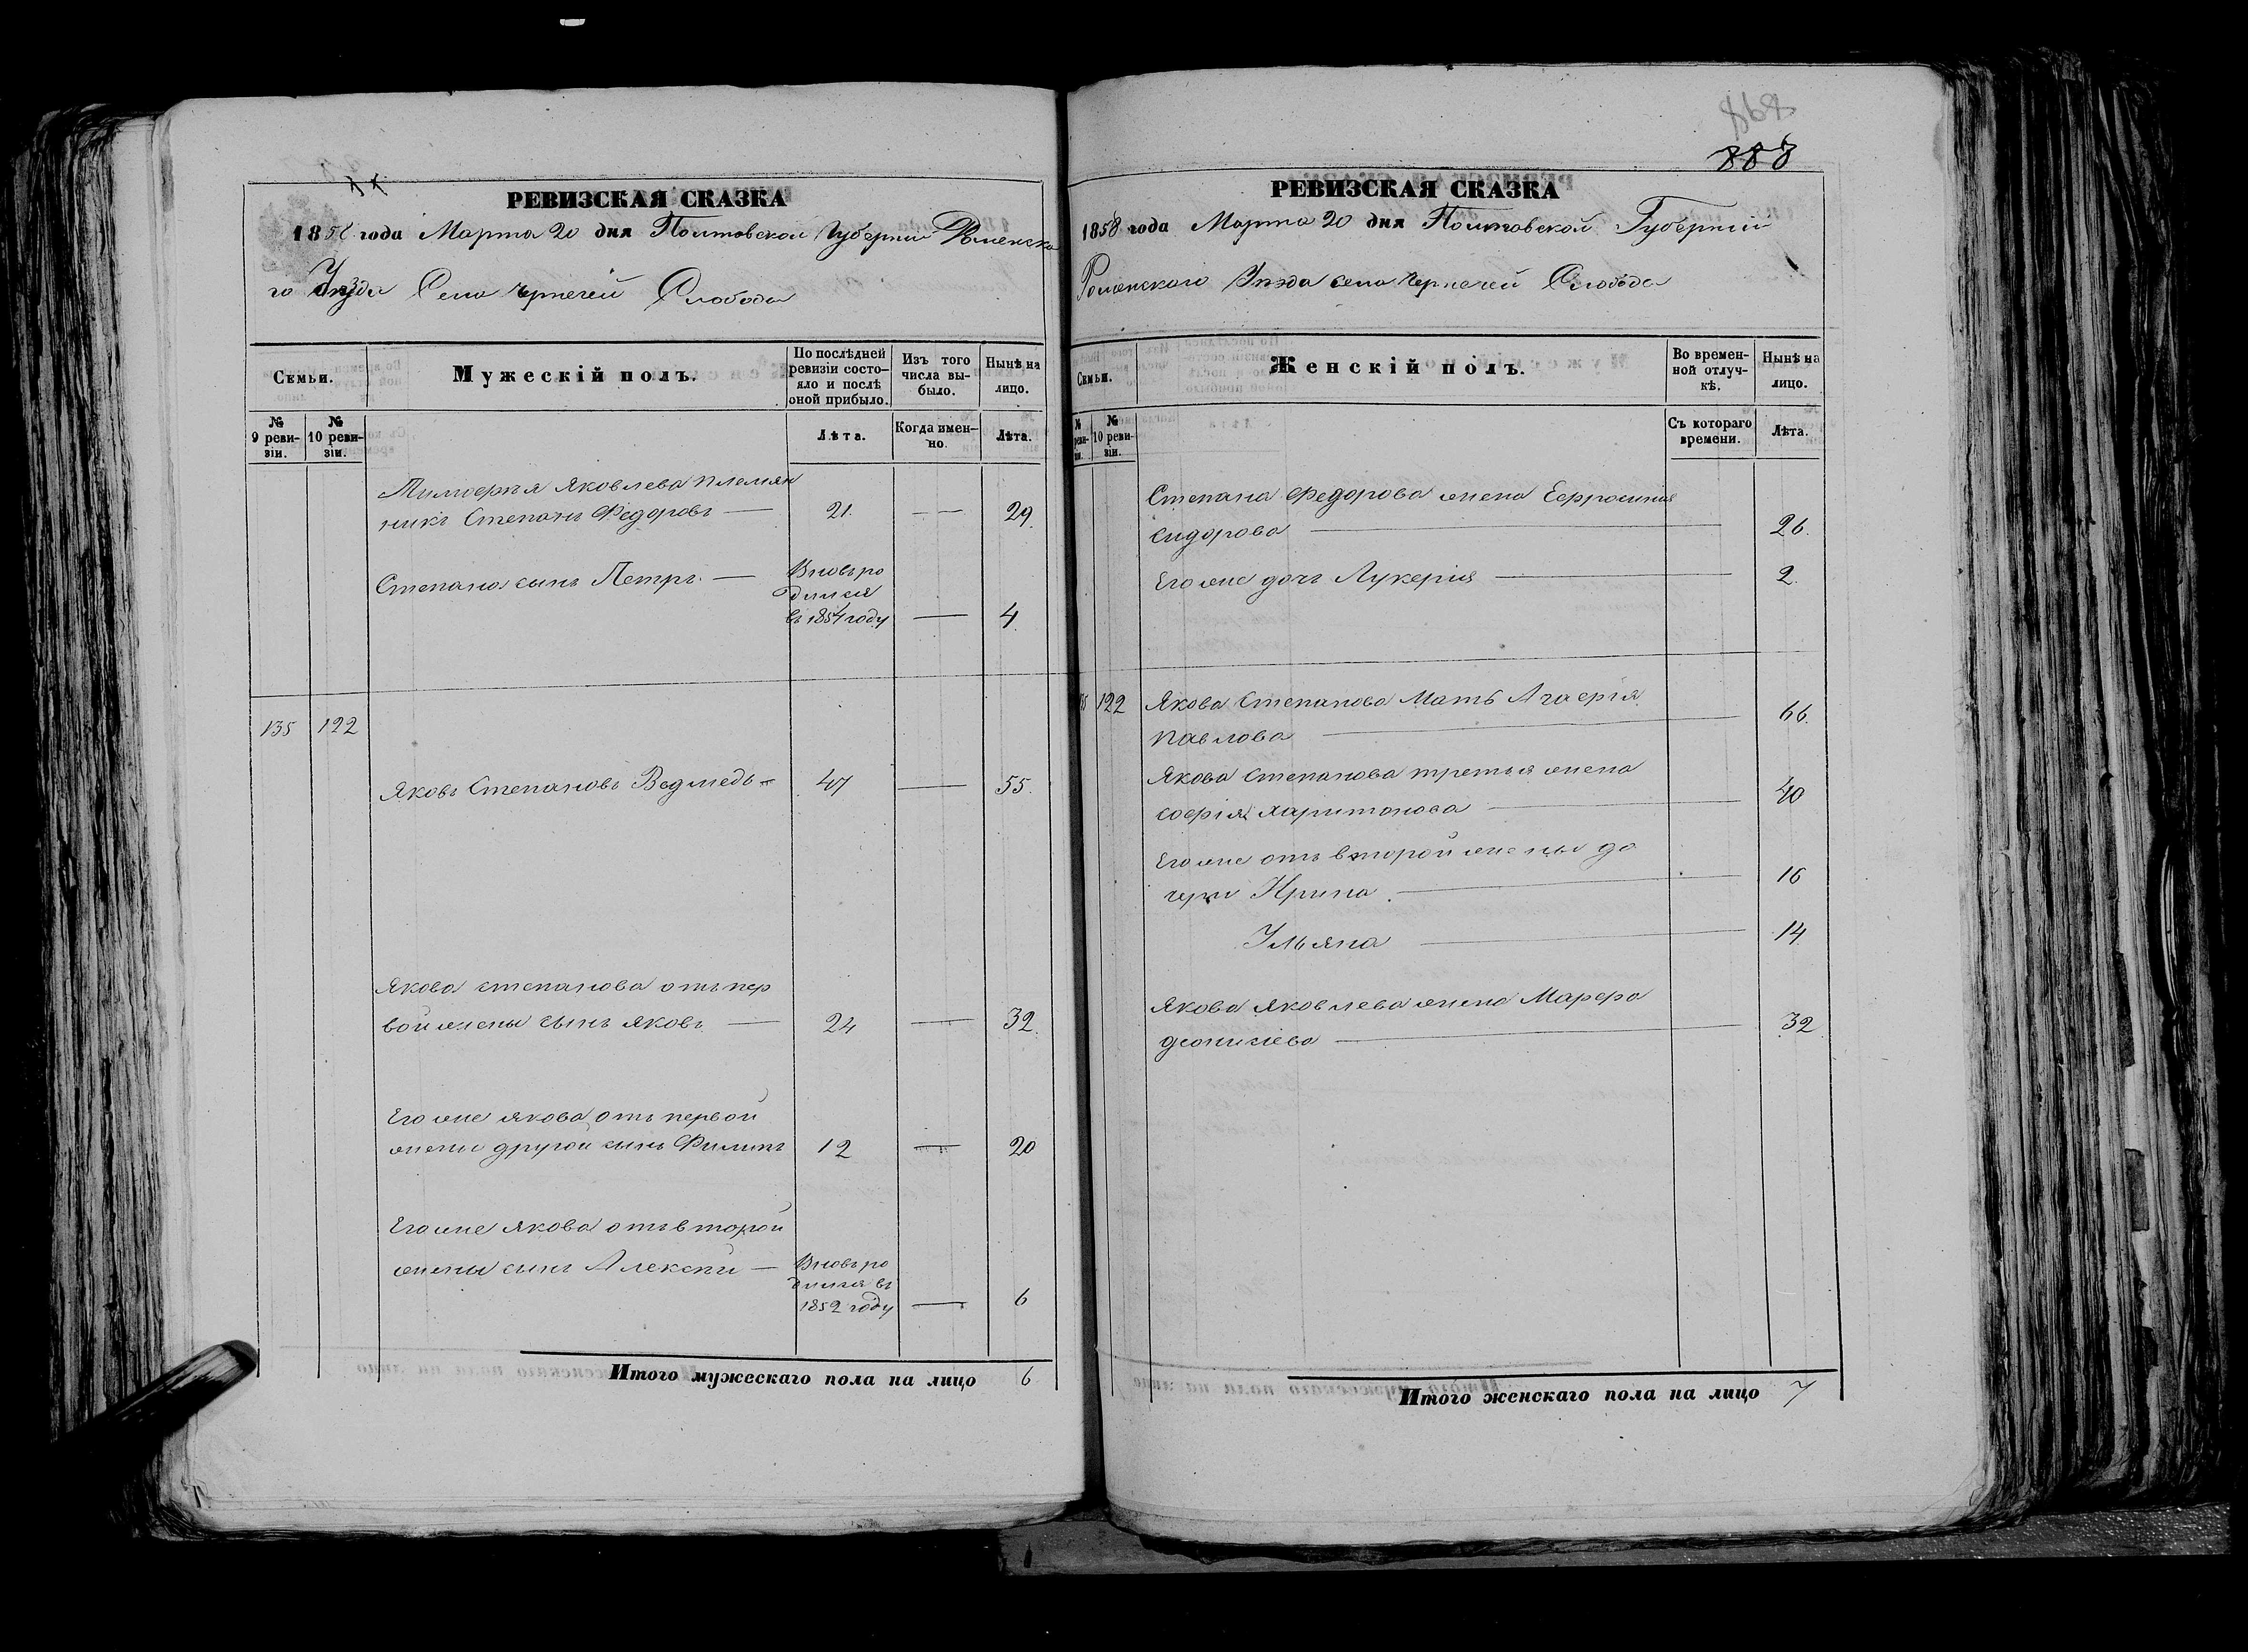 868
888
РЕВИЗСКАЯ СКАЗКА
1858 года Марта 20 дня Полтавской Губернии Роменска
го Уезда Села Чернечей Слободы
Семьи.
Мужескій полъ.
По послѣдней ревизіи состояло и послѣ оной прибыло.
Изъ того числа выбыло.
Нынѣ на лицо.
№ 9 ревизіи.
№ 10 ревизіи.
Лѣта.
Когда именно.
Лѣта.
Тимоерія Яковлева племян
никъ Степанъ Федоровъ — 21. — — 29.
Степана сынъ Петръ. — Вновь ро
дился
въ 1854 году — 4.
135 122
Яковъ Степановъ Ведмедь 47 — 55.
Якова степанова отъ пер
вой жены сынъ Яковъ — 24 — 32.
Его же якова отъ первой
жены другой сынъ Филипъ 12 — 20
Его же якова отъ второй
жены сынъ Алексѣй — Вновь ро
дился въ
1852 году — 6
Итого мужескаго пола на лицо 6
РЕВИЗСКАЯ СКАЗКА
1858 года Марта 20 дня Полтавской Губерніи
Роменскаго Уѣзда села Чернечей Слободы
Семьи.
Женскій полъ.
Во временной отлучкѣ.
Нынѣ на лицо.
№ 10 ревизіи.
Съ котораго времени.
Лѣта.
Степана Федорова жена Ефросинія
Сидорова — 26.
Его же дочь Лукерія — 2.
122 Якова Степанова Мать Агаерія
Павлова — 66.
Якова Степанова третья жена
соерія Харитонова — 40
Его же отъ второй жены до
чери Ирина — 16
Ульяна — 14
Якова Яковлева жена Марера
деонисіева — 32
Итого женскаго пола на лицо 7